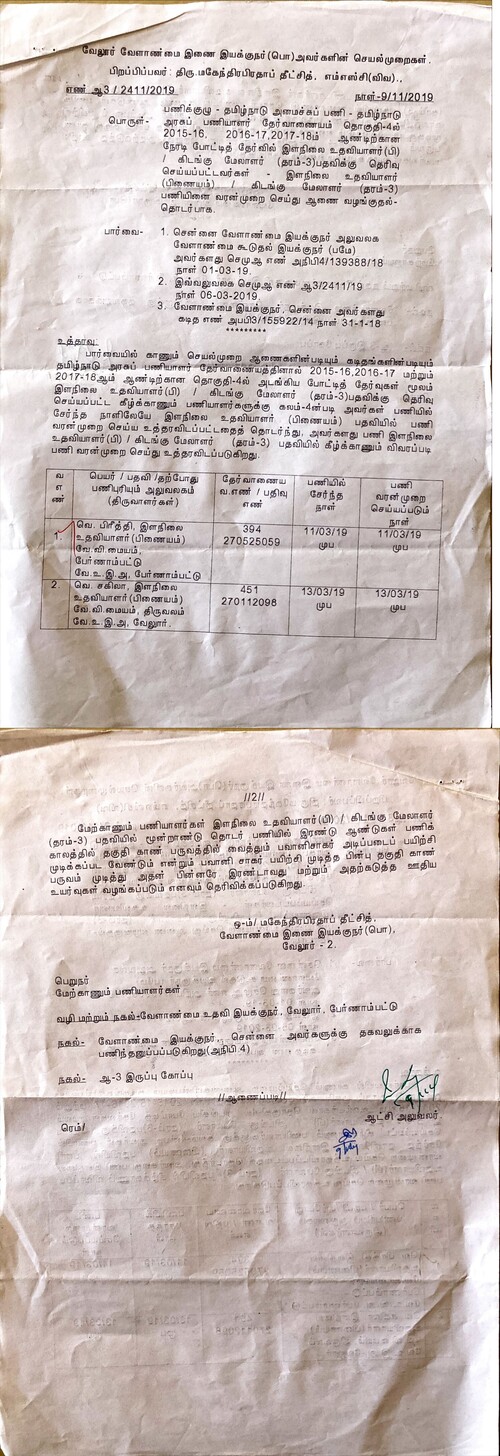 வேலூர் வேளாண்மை இணை இயக்குநர்(பொ)அவர்களின் செயல்முறைகள்.
பிறப்பிப்பவர்: திரு.மகேந்திரபிரதாப் தீட்சித், எம்எஸ்சி(விவ).,
எண் ஆ3 / 2411/2019 நாள்-9/11/2019
பொருள்- பணிக்குழு - தமிழ்நாடு அமைச்சுப் பணி - தமிழ்நாடு
அரசுப் பணியாளர் தேர்வாணையம் தொகுதி-4ல்
2015-16, 2016-17,2017-18ம் ஆண்டிற்கான
நேரடி போட்டித் தேர்வில் இளநிலை உதவியாளர்(பி)
/ கிடங்கு மேலாளர் (தரம்-3)பதவிக்கு தெரிவு
செய்யப்பட்டவர்கள் - இளநிலை உதவியாளர்
(பிணையம்) / கிடங்கு மேலாளர் (தரம்-3)
பணியினை வரன்முறை செய்து ஆணை வழங்குதல்-
தொடர்பாக.
பார்வை- 1. சென்னை வேளாண்மை இயக்குநர் அலுவலக
வேளாண்மை கூடுதல் இயக்குநர் (பமே)
அவர்களது செமுஆ எண் அநிபி4/139388/18
நாள் 01-03-19.
2. இவ்வலுவலக செமுஆ எண் ஆ3/2411/19
நாள் 06-03-2019.
3. வேளாண்மை இயக்குநர், சென்னை அவர்களது
கடித எண் அபபி3/155922/14 நாள் 31-1-18
*********
உத்தரவு
பார்வையில் காணும் செயல்முறை ஆணைகளின்படியும் கடிதங்களின்படியும்
தமிழ்நாடு அரசுப் பணியாளர் தேர்வாணையத்தினால் 2015-16,2016-17 மற்றும்
2017-18ஆம் ஆண்டிற்கான தொகுதி-4ல் அடங்கிய போட்டித் தேர்வுகள் மூலம்
இளநிலை உதவியாளர்(பி) / கிடங்கு மேலாளர் (தரம்-3)பதவிக்கு தெரிவு
செய்யப்பட்ட கீழ்க்காணும் பணியாளர்களுக்கு கலம்-4ன்படி அவர்கள் பணியில்
சேர்ந்த நாளிலேயே இளநிலை உதவியாளர் (பிணையம்) பதவியில் பணி
வரன்முறை செய்ய உத்தரவிடப்பட்டதைத் தொடர்ந்து, அவர்களது பணி இளநிலை
உதவியாளர்(பி) / கிடங்கு மேலாளர் (தரம்-3) பதவியில் கீழ்க்காணும் விவரப்படி
பணி வரன்முறை செய்து உத்தரவிடப்படுகிறது.
வ எ ண் பெயர் / பதவி /தற்போது பணிபுரியும் அலுவலகம் (திருவாளர்கள்) தேர்வாணைய வ.எண் / பதிவு எண் பணியில் சேர்ந்த நாள் பணி வரன்முறை செய்யப்படும் நாள்
1. வெ. பிரீத்தி, இளநிலை 394 11/03/19 11/03/19
உதவியாளர்(பிணையம்) 270525059 முப முப
வே.வி.மையம்,
பேர்ணாம்பட்டு
வே.உ.இ.அ, பேர்ணாம்பட்டு
2. வெ. சகிலா, இளநிலை 451 13/03/19 13/03/19
உதவியாளர்(பிணையம்) 270112098 முப முப
வே.வி.மையம், திருவலம்
வே.உ.இ.அ, வேலூர்.
//2//
மேற்காணும் பணியாளர்கள் இளநிலை உதவியாளர்(பி) / கிடங்கு மேலாளர்
(தரம்-3) பதவியில் மூன்றாண்டு தொடர் பணியில் இரண்டு ஆண்டுகள் பணிக்
காலத்தில் தகுதி காண் பருவத்தில் வைத்தும் பவானிசாகர் அடிப்படைப் பயிற்சி
முடிக்கப்பட வேண்டும் என்றும் பவானி சாகர் பயிற்சி முடித்த பின்பு தகுதி காண்
பருவம் முடித்து அதன் பின்னரே இரண்டாவது மற்றும் அதற்கடுத்த ஊதிய
உயர்வுகள் வழங்கப்படும் எனவும் தெரிவிக்கப்படுகிறது.
ஒ-ம்/ மகேந்திரபிரதாப் தீட்சித்,
வேளாண்மை இணை இயக்குநர்(பொ),
வேலூர் - 2.
பெறுநர்
மேற்காணும் பணியாளர்கள்
வழி மற்றும் நகல்-வேளாண்மை உதவி இயக்குநர், வேலூர், பேர்ணாம்பட்டு
நகல்- வேளாண்மை இயக்குநர், சென்னை அவர்களுக்கு தகவலுக்காக
பணிந்தனுப்பப்படுகிறது(அநிபி.4)
நகல்- ஆ-3 இருப்பு கோப்பு
//ஆணைப்படி//
ஆட்சி அலுவலர்
ரெம்/